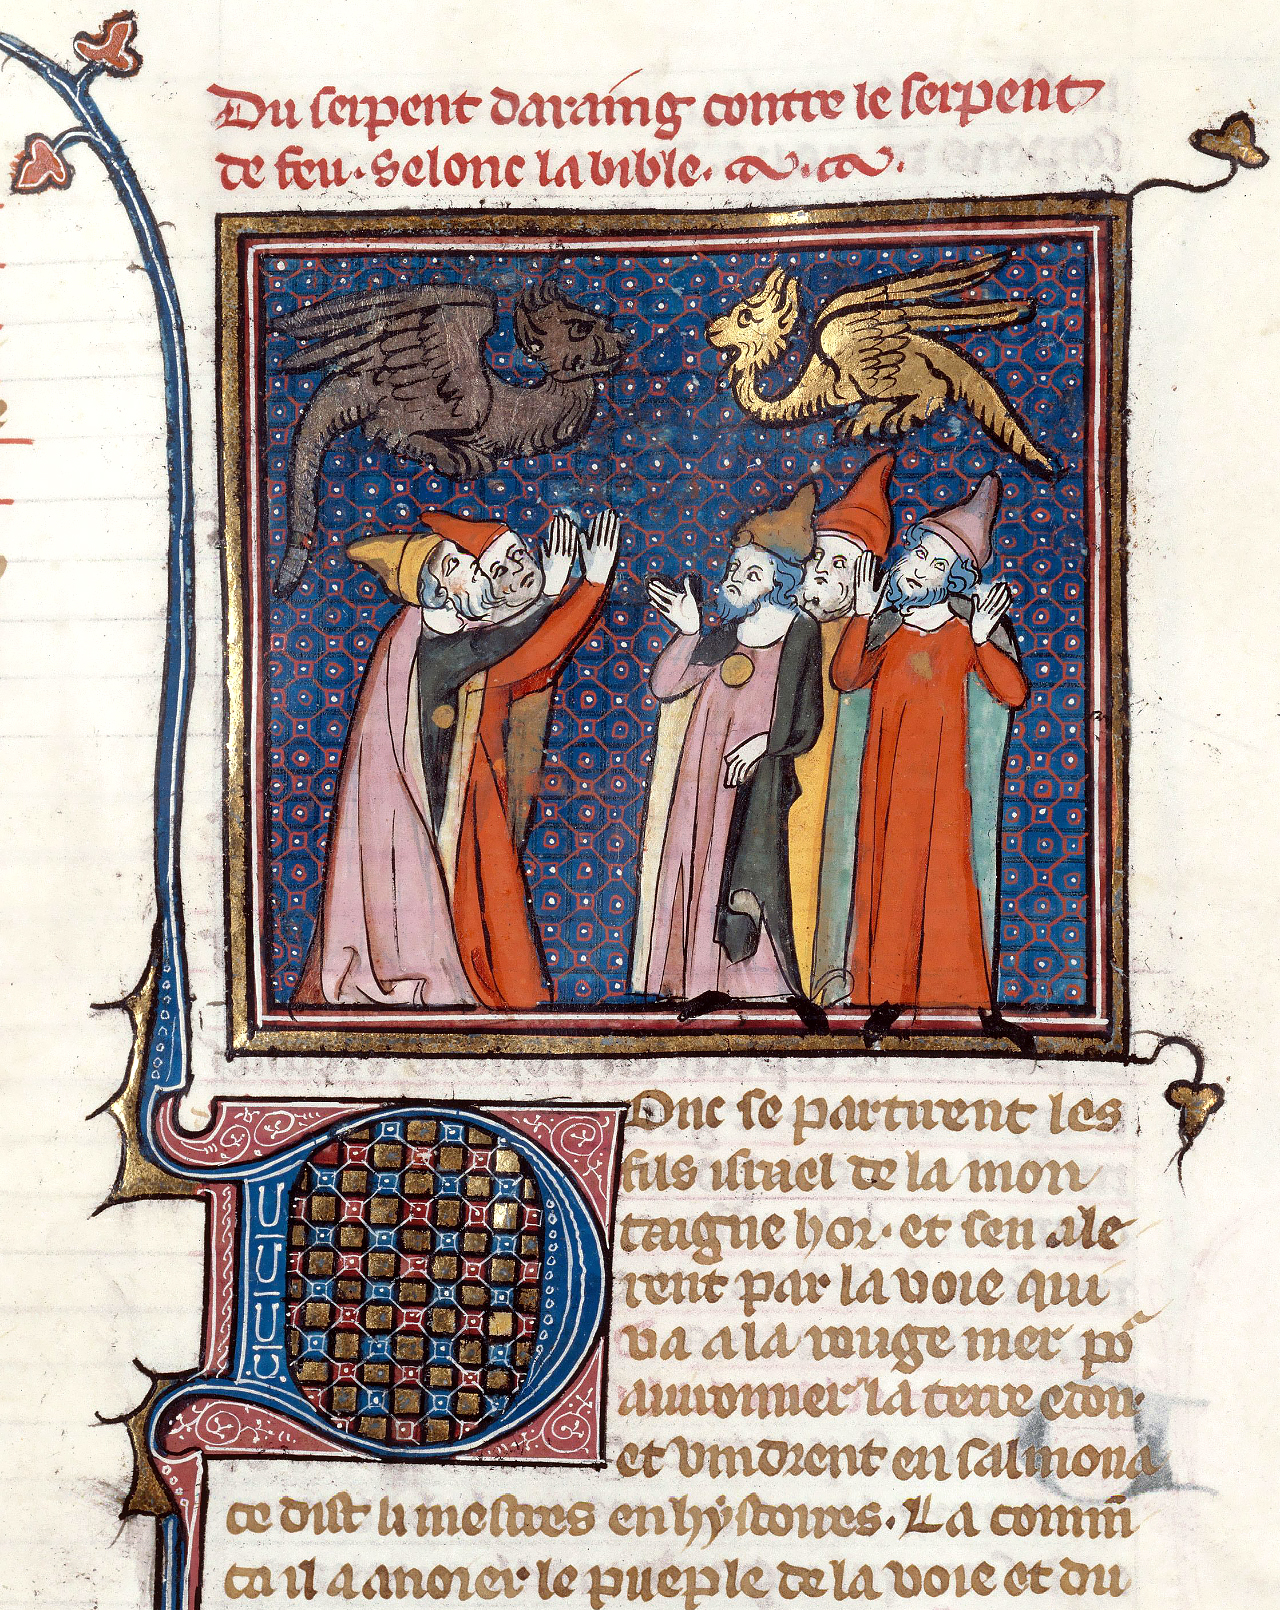 Du serpent daraing contre le serpent
de feu. Selonc la bible.
Donc se partirent les
fils israel de la mon
taigne hor. et sen ale
rent par la voie qui
va a la rouge mer po
auironner la terre edom.
et vindrent en salmona
ce dist li mestres en hystoires. La comm
ca il a anoier le pueple de la voie et du